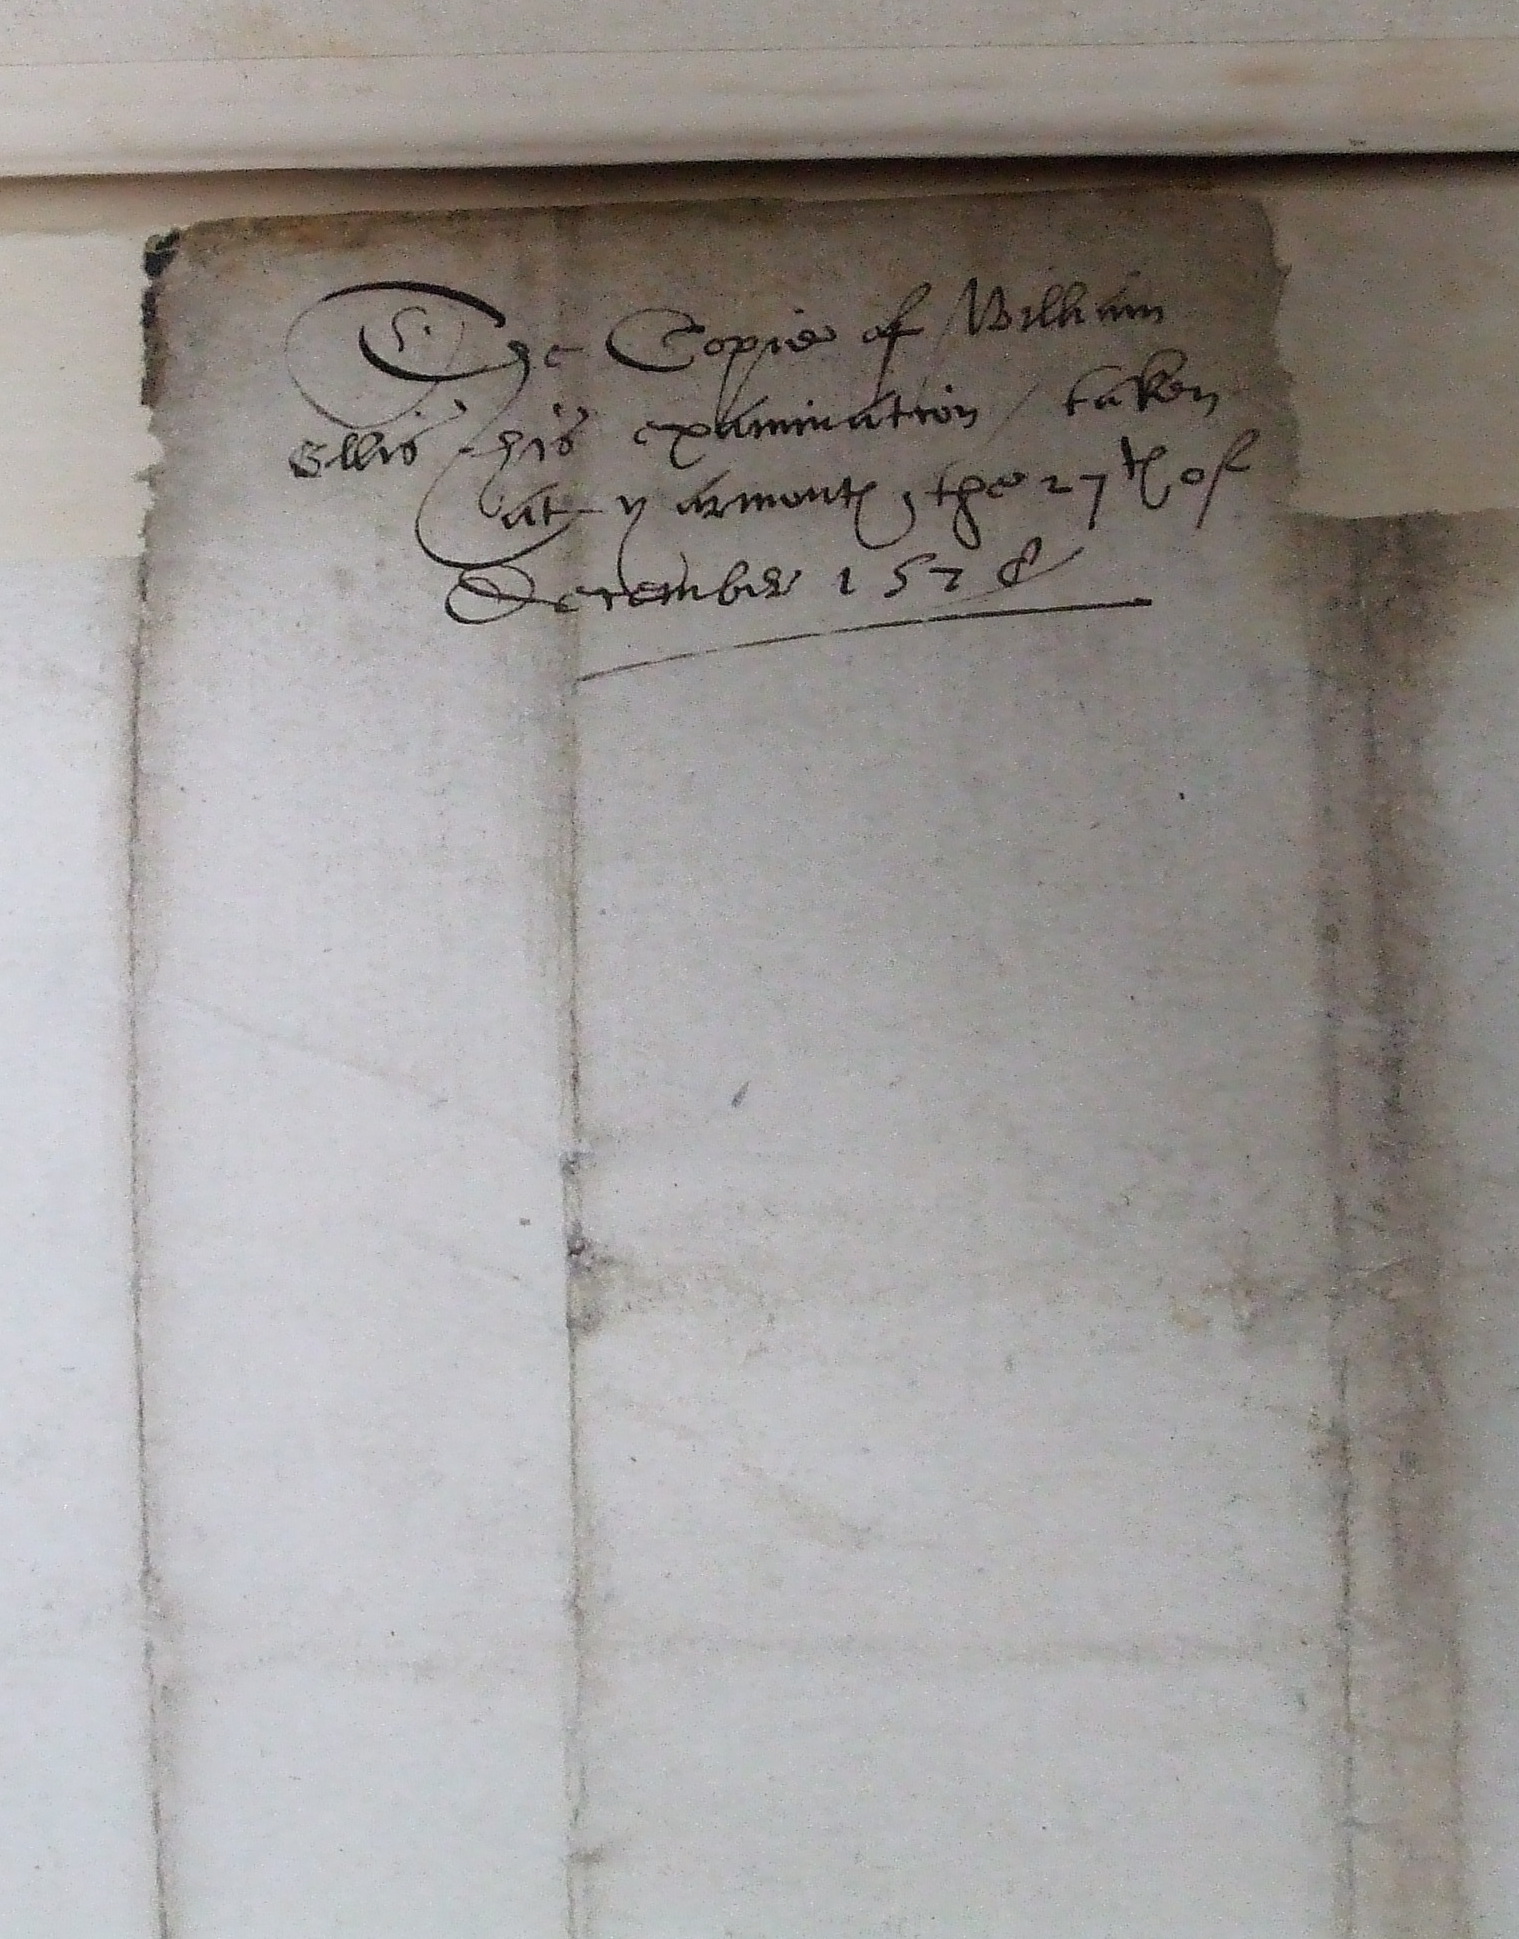 The Copie of William
Ellis his examination / taken
at yarmouth, the 27th of
December 1578